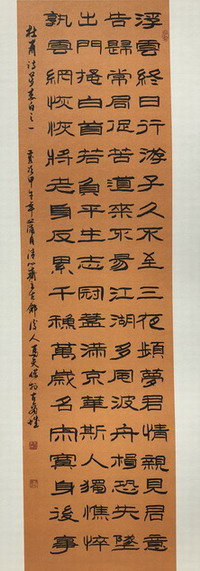 浮雲終日行游子久不至三夜頻夢君情親見君意
告歸常局促苦道來不易江湖多風波舟楫恐失墜
出門搔白首若負平生志冠蓋滿京華斯人獨憔悴
孰雲網恢恢將老身反累千穐萬歲名寂寞身後事
杜甫詩夢李白之一 歲次甲午年